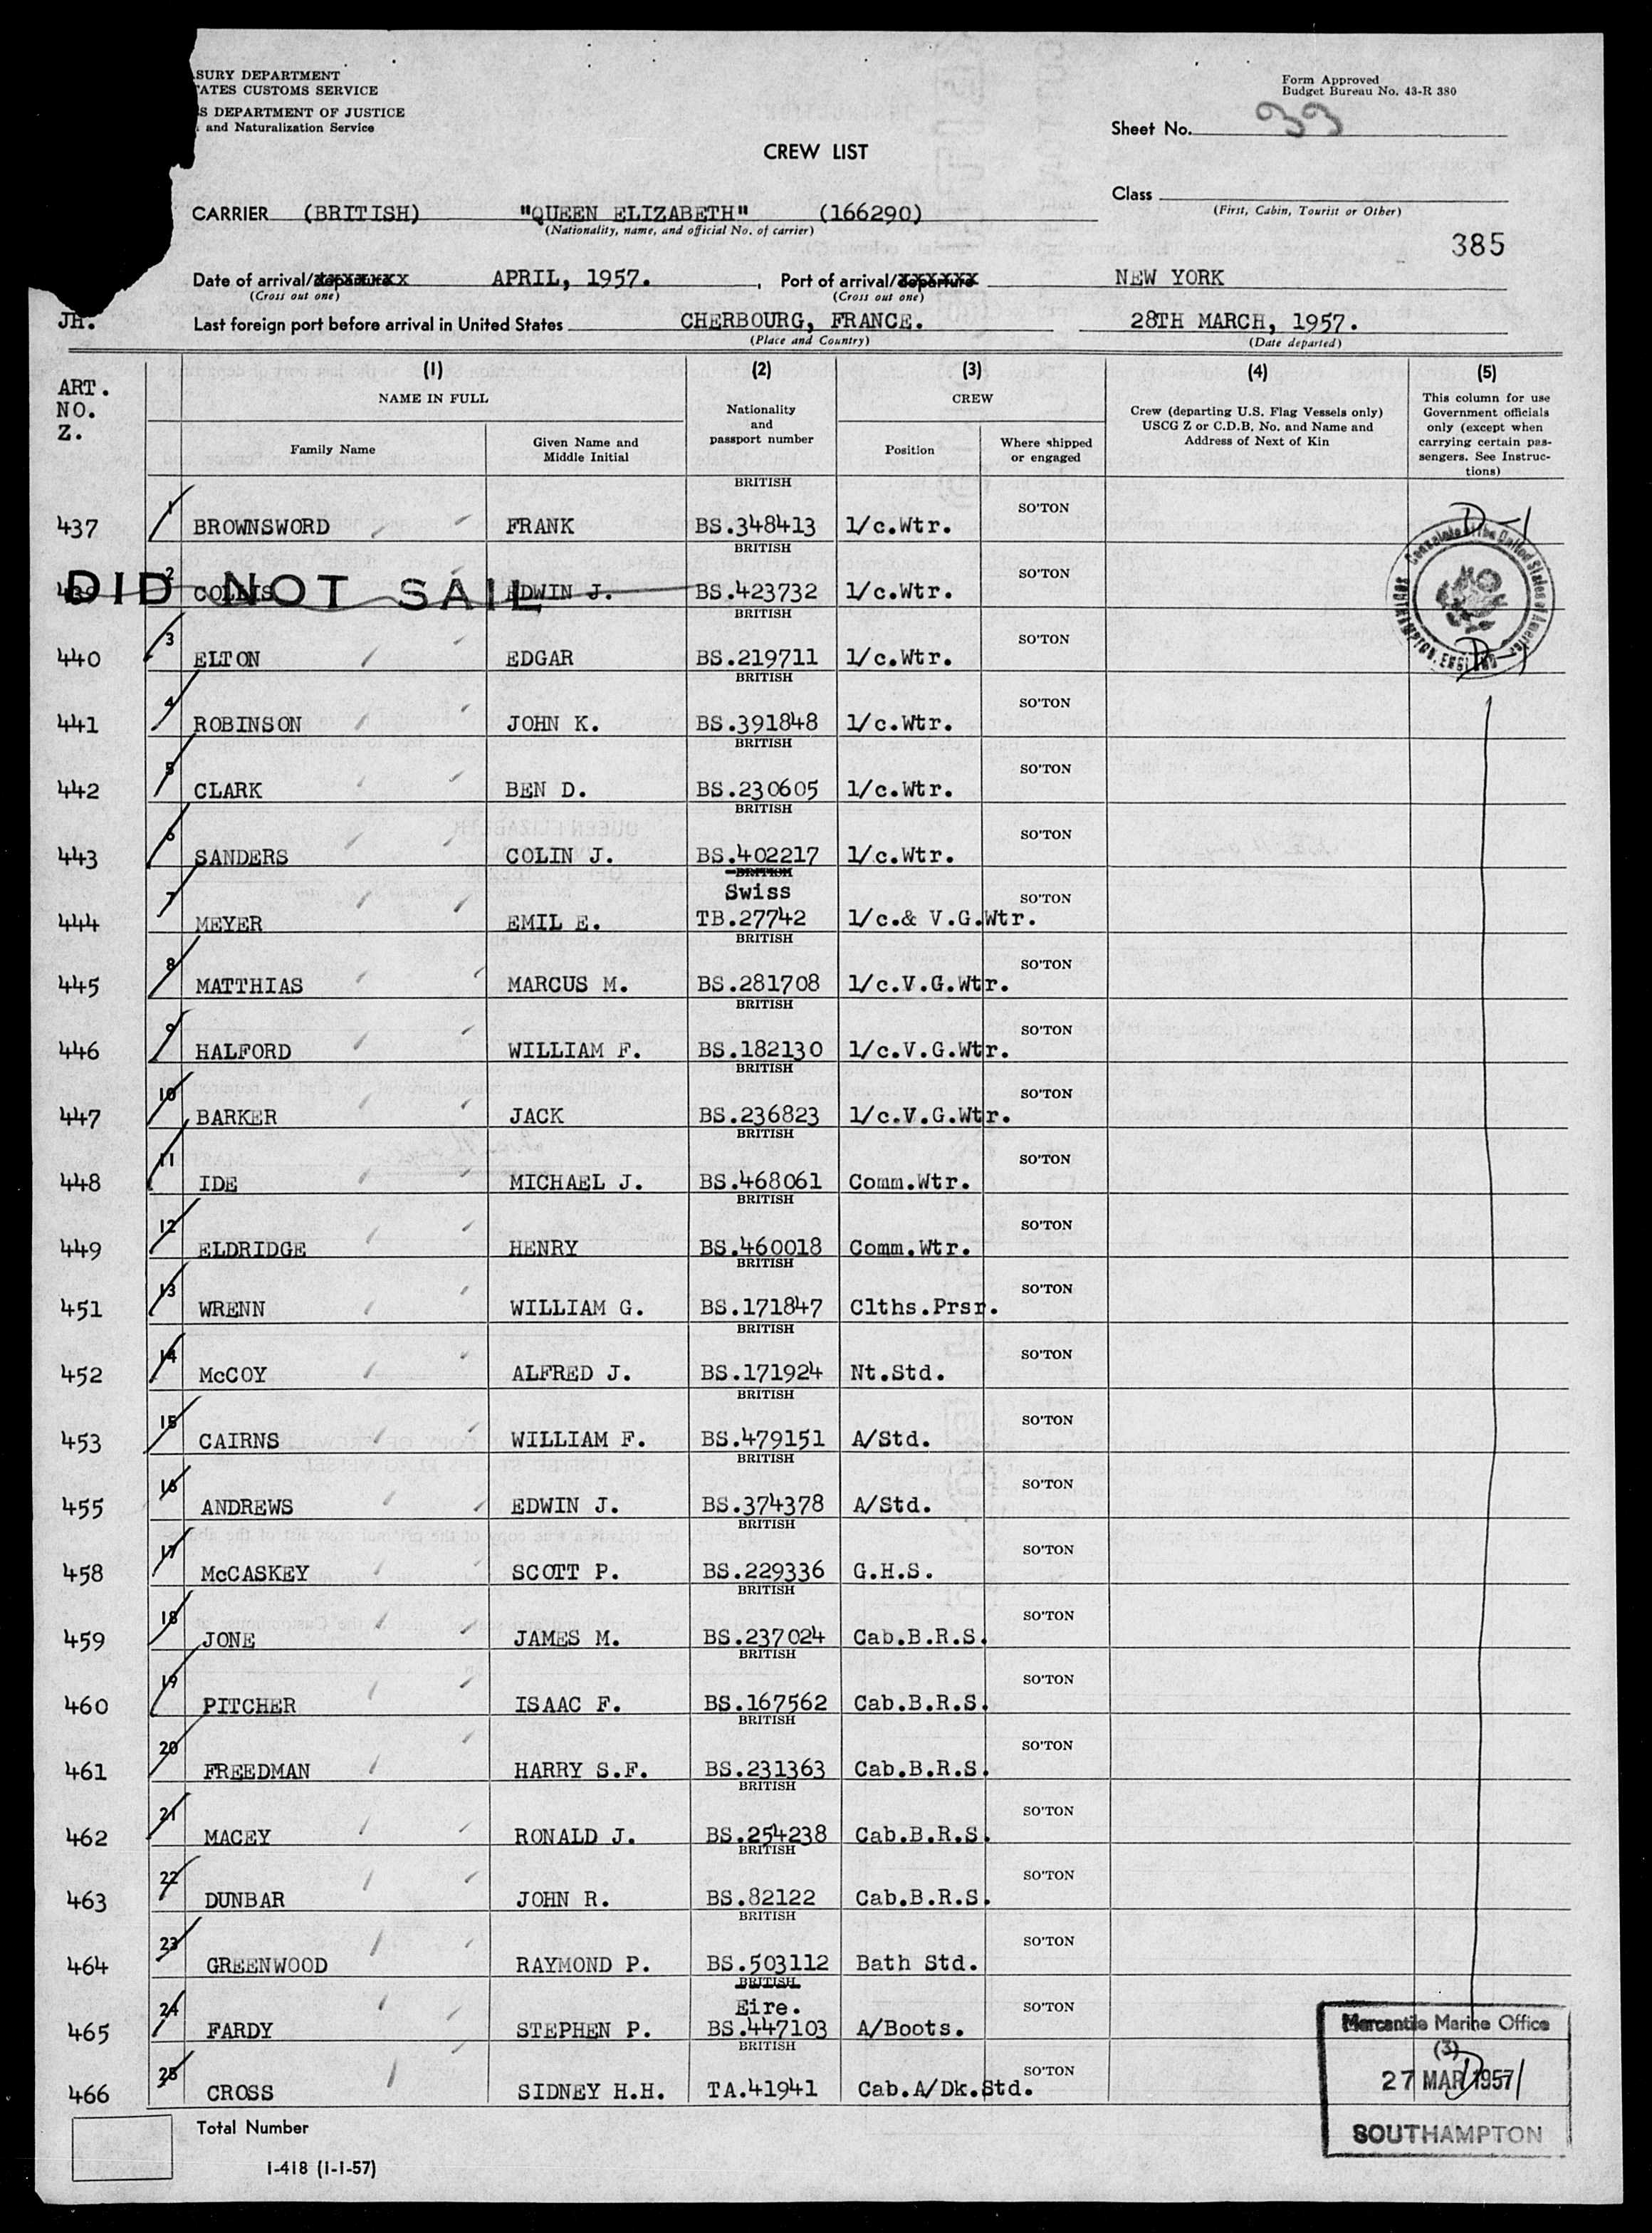 SURY DEPARTMENT
ATES CUSTOMS SERVICE
S DEPARTMENT OF JUSTICE
and Naturalization Service
Form Approved
Budget Bureau No. 43-R 380
Sheet No. 33
CREW LIST
Class
(First, Cabin, Tourist or Other)
CARRIER (BRITISH) "QUEEN ELIZABETH" (166290)
(Nationality, name, and official No. of carrier)
385
Date of arrival/departure APRIL, 1957. , Port of arrival/departure NEW YORK
(Cross out one) (Cross out one)
JH. Last foreign port before arrival in United States CHERBOURG, FRANCE. 28TH MARCH, 1957.
(Place and Country) (Date departed)
ART. NO. Z.
(1) (2) (3) (4) (5)
NAME IN FULL
Family Name
Given Name and Middle Initial
Nationality and passport number
CREW
Position
Where shipped or engaged
Crew (departing U.S. Flag Vessels only) USCG Z or C.D.B. No. and Name and Address of Next of Kin
This column for use Government officials only (except when carrying certain passengers. See Instructions)
437 1 BROWNSWORD FRANK BRITISH BS.348413 1/c.Wtr. SO'TON D-1
2 COLLIS EDWIN J. BRITISH BS.423732 1/c.Wtr. SO'TON
DID NOT SAIL
Consulate of the United States of America
SOUTHAMPTON, ENGLAND
440 3 ELTON EDGAR BRITISH BS.219711 1/c.Wtr. SO'TON D-1
441 4 ROBINSON JOHN K. BRITISH BS.391848 1/c.Wtr. SO'TON
442 5 CLARK BEN D. BRITISH BS.230605 1/c.Wtr. SO'TON
443 6 SANDERS COLIN J. BRITISH BS.402217 1/c.Wtr. SO'TON
444 7 MEYER EMIL E. BRITISH Swiss TB.27742 1/c.& V.G.Wtr. SO'TON
445 8 MATTHIAS MARCUS M. BRITISH BS.281708 1/c.V.G.Wtr. SO'TON
446 9 HALFORD WILLIAM F. BRITISH BS.182130 1/c.V.G.Wtr. SO'TON
447 10 BARKER JACK BRITISH BS.236823 1/c.V.G.Wtr. SO'TON
448 11 IDE MICHAEL J. BRITISH BS.468061 Comm.Wtr. SO'TON
449 12 ELDRIDGE HENRY BRITISH BS.460018 Comm.Wtr. SO'TON
451 13 WRENN WILLIAM G. BRITISH BS.171847 Clths.Prsr. SO'TON
452 14 McCOY ALFRED J. BRITISH BS.171924 Nt.Std. SO'TON
453 15 CAIRNS WILLIAM F. BRITISH BS.479151 A/Std. SO'TON
455 16 ANDREWS EDWIN J. BRITISH BS.374378 A/Std. SO'TON
458 17 McCASKEY SCOTT P. BRITISH BS.229336 G.H.S. SO'TON
459 18 JONE JAMES M. BRITISH BS.237024 Cab.B.R.S. SO'TON
460 19 PITCHER ISAAC F. BRITISH BS.167562 Cab.B.R.S. SO'TON
461 20 FREEDMAN HARRY S.F. BRITISH BS.231363 Cab.B.R.S. SO'TON
462 21 MACEY RONALD J. BRITISH BS.254238 Cab.B.R.S. SO'TON
463 22 DUNBAR JOHN R. BRITISH BS.82122 Cab.B.R.S. SO'TON
464 23 GREENWOOD RAYMOND P. BRITISH BS.503112 Bath Std. SO'TON
465 24 FARDY STEPHEN P. BRITISH Eire. BS.447103 A/Boots. SO'TON
466 25 CROSS SIDNEY H.H. BRITISH TA.41941 Cab.A/Dk.Std. SO'TON D-1
Mercantile Marine Office
(3)
27 MAR 1957
SOUTHAMPTON
Total Number
I-418 (1-1-57)